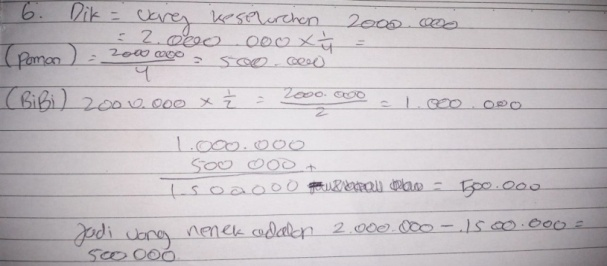 6. Dik = uang keseluruhan 2000.000
= 2.000.000 x 1/4 =
(Paman) = 2000000/4 = 500.000
(BiBi) 2000.000 x 1/2 = 2000.000/2 = 1.000.000
1.000.000
500 000 +
1.500000 = 500.000
Jadi uang nenek adalah 2.000.000 - 1500.000 =
500 000